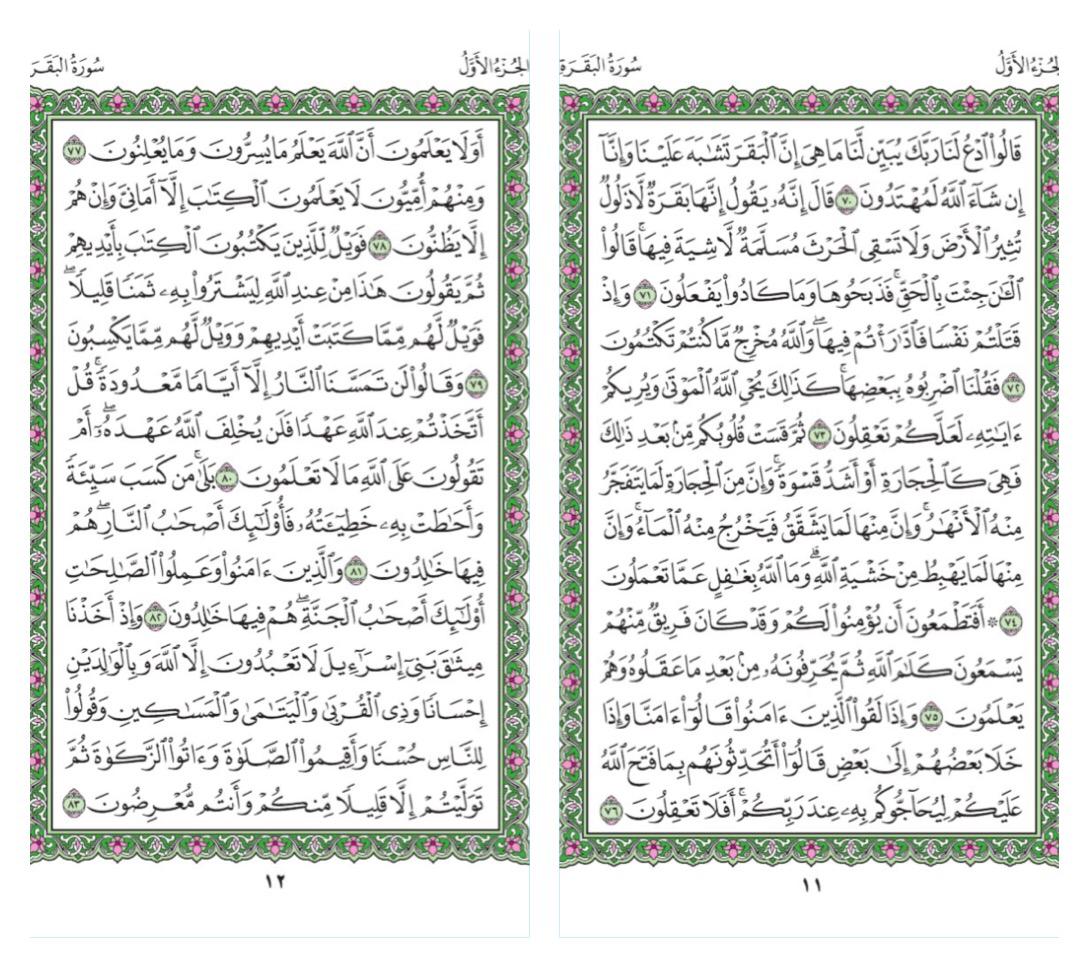 الجُزءُ الأَوَّلُ
سُورَةُ البَقَرَةِ
قَالُوا۟ ٱدْعُ لَنَا رَبَّكَ يُبَيِّن لَّنَا مَا هِىَ إِنَّ ٱلْبَقَرَ تَشَٰبَهَ عَلَيْنَا وَإِنَّآ
إِن شَآءَ ٱللَّهُ لَمُهْتَدُونَ ٧٠ قَالَ إِنَّهُۥ يَقُولُ إِنَّهَا بَقَرَةٌ لَّا ذَلُولٌ
تُثِيرُ ٱلْأَرْضَ وَلَا تَسْقِى ٱلْحَرْثَ مُسَلَّمَةٌ لَّا شِيَةَ فِيهَا ۚ قَالُوا۟
ٱلْـَٰٔنَ جِئْتَ بِٱلْحَقِّ ۚ فَذَبَحُوهَا وَمَا كَادُوا۟ يَفْعَلُونَ ٧١ وَإِذْ
قَتَلْتُمْ نَفْسًا فَٱدَّٰرَْٰٔتُمْ فِيهَا ۖ وَٱللَّهُ مُخْرِجٌ مَّا كُنتُمْ تَكْتُمُونَ
٧٢ فَقُلْنَا ٱضْرِبُوهُ بِبَعْضِهَا ۚ كَذَٰلِكَ يُحْىِ ٱللَّهُ ٱلْمَوْتَىٰ وَيُرِيكُمْ
ءَايَٰتِهِۦ لَعَلَّكُمْ تَعْقِلُونَ ٧٣ ثُمَّ قَسَتْ قُلُوبُكُم مِّنۢ بَعْدِ ذَٰلِكَ
فَهِىَ كَٱلْحِجَارَةِ أَوْ أَشَدُّ قَسْوَةً ۚ وَإِنَّ مِنَ ٱلْحِجَارَةِ لَمَا يَتَفَجَّرُ
مِنْهُ ٱلْأَنْهَٰرُ ۚ وَإِنَّ مِنْهَا لَمَا يَشَّقَّقُ فَيَخْرُجُ مِنْهُ ٱلْمَآءُ ۚ وَإِنَّ
مِنْهَا لَمَا يَهْبِطُ مِنْ خَشْيَةِ ٱللَّهِ ۗ وَمَا ٱللَّهُ بِغَٰفِلٍ عَمَّا تَعْمَلُونَ
٧٤ ۞ أَفَتَطْمَعُونَ أَن يُؤْمِنُوا۟ لَكُمْ وَقَدْ كَانَ فَرِيقٌ مِّنْهُمْ
يَسْمَعُونَ كَلَٰمَ ٱللَّهِ ثُمَّ يُحَرِّفُونَهُۥ مِنۢ بَعْدِ مَا عَقَلُوهُ وَهُمْ
يَعْلَمُونَ ٧٥ وَإِذَا لَقُوا۟ ٱلَّذِينَ ءَامَنُوا۟ قَالُوٓا۟ ءَامَنَّا وَإِذَا
خَلَا بَعْضُهُمْ إِلَىٰ بَعْضٍ قَالُوٓا۟ أَتُحَدِّثُونَهُم بِمَا فَتَحَ ٱللَّهُ
عَلَيْكُمْ لِيُحَآجُّوكُم بِهِۦ عِندَ رَبِّكُمْ ۚ أَفَلَا تَعْقِلُونَ ٧٦
١١
الجُزءُ الأَوَّلُ
سُورَةُ البَقَرَ
أَوَلَا يَعْلَمُونَ أَنَّ ٱللَّهَ يَعْلَمُ مَا يُسِرُّونَ وَمَا يُعْلِنُونَ ٧٧
وَمِنْهُمْ أُمِّيُّونَ لَا يَعْلَمُونَ ٱلْكِتَٰبَ إِلَّآ أَمَانِىَّ وَإِنْ هُمْ
إِلَّا يَظُنُّونَ ٧٨ فَوَيْلٌ لِّلَّذِينَ يَكْتُبُونَ ٱلْكِتَٰبَ بِأَيْدِيهِمْ
ثُمَّ يَقُولُونَ هَٰذَا مِنْ عِندِ ٱللَّهِ لِيَشْتَرُوا۟ بِهِۦ ثَمَنًا قَلِيلًا ۖ
فَوَيْلٌ لَّهُم مِّمَّا كَتَبَتْ أَيْدِيهِمْ وَوَيْلٌ لَّهُم مِّمَّا يَكْسِبُونَ
٧٩ وَقَالُوا۟ لَن تَمَسَّنَا ٱلنَّارُ إِلَّآ أَيَّامًا مَّعْدُودَةً ۚ قُلْ
أَتَّخَذْتُمْ عِندَ ٱللَّهِ عَهْدًا فَلَن يُخْلِفَ ٱللَّهُ عَهْدَهُۥٓ ۖ أَمْ
تَقُولُونَ عَلَى ٱللَّهِ مَا لَا تَعْلَمُونَ ٨٠ بَلَىٰ ۚ مَن كَسَبَ سَيِّئَةً
وَأَحَٰطَتْ بِهِۦ خَطِيٓـَٔتُهُۥ فَأُو۟لَٰٓئِكَ أَصْحَٰبُ ٱلنَّارِ ۖ هُمْ
فِيهَا خَٰلِدُونَ ٨١ وَٱلَّذِينَ ءَامَنُوا۟ وَعَمِلُوا۟ ٱلصَّٰلِحَٰتِ
أُو۟لَٰٓئِكَ أَصْحَٰبُ ٱلْجَنَّةِ ۖ هُمْ فِيهَا خَٰلِدُونَ ٨٢ وَإِذْ أَخَذْنَا
مِيثَٰقَ بَنِىٓ إِسْرَٰٓءِيلَ لَا تَعْبُدُونَ إِلَّا ٱللَّهَ وَبِٱلْوَٰلِدَيْنِ
إِحْسَانًا وَذِى ٱلْقُرْبَىٰ وَٱلْيَتَٰمَىٰ وَٱلْمَسَٰكِينِ وَقُولُوا۟
لِلنَّاسِ حُسْنًا وَأَقِيمُوا۟ ٱلصَّلَوٰةَ وَءَاتُوا۟ ٱلزَّكَوٰةَ ثُمَّ
تَوَلَّيْتُمْ إِلَّا قَلِيلًا مِّنكُمْ وَأَنتُم مُّعْرِضُونَ ٨٣
١٢